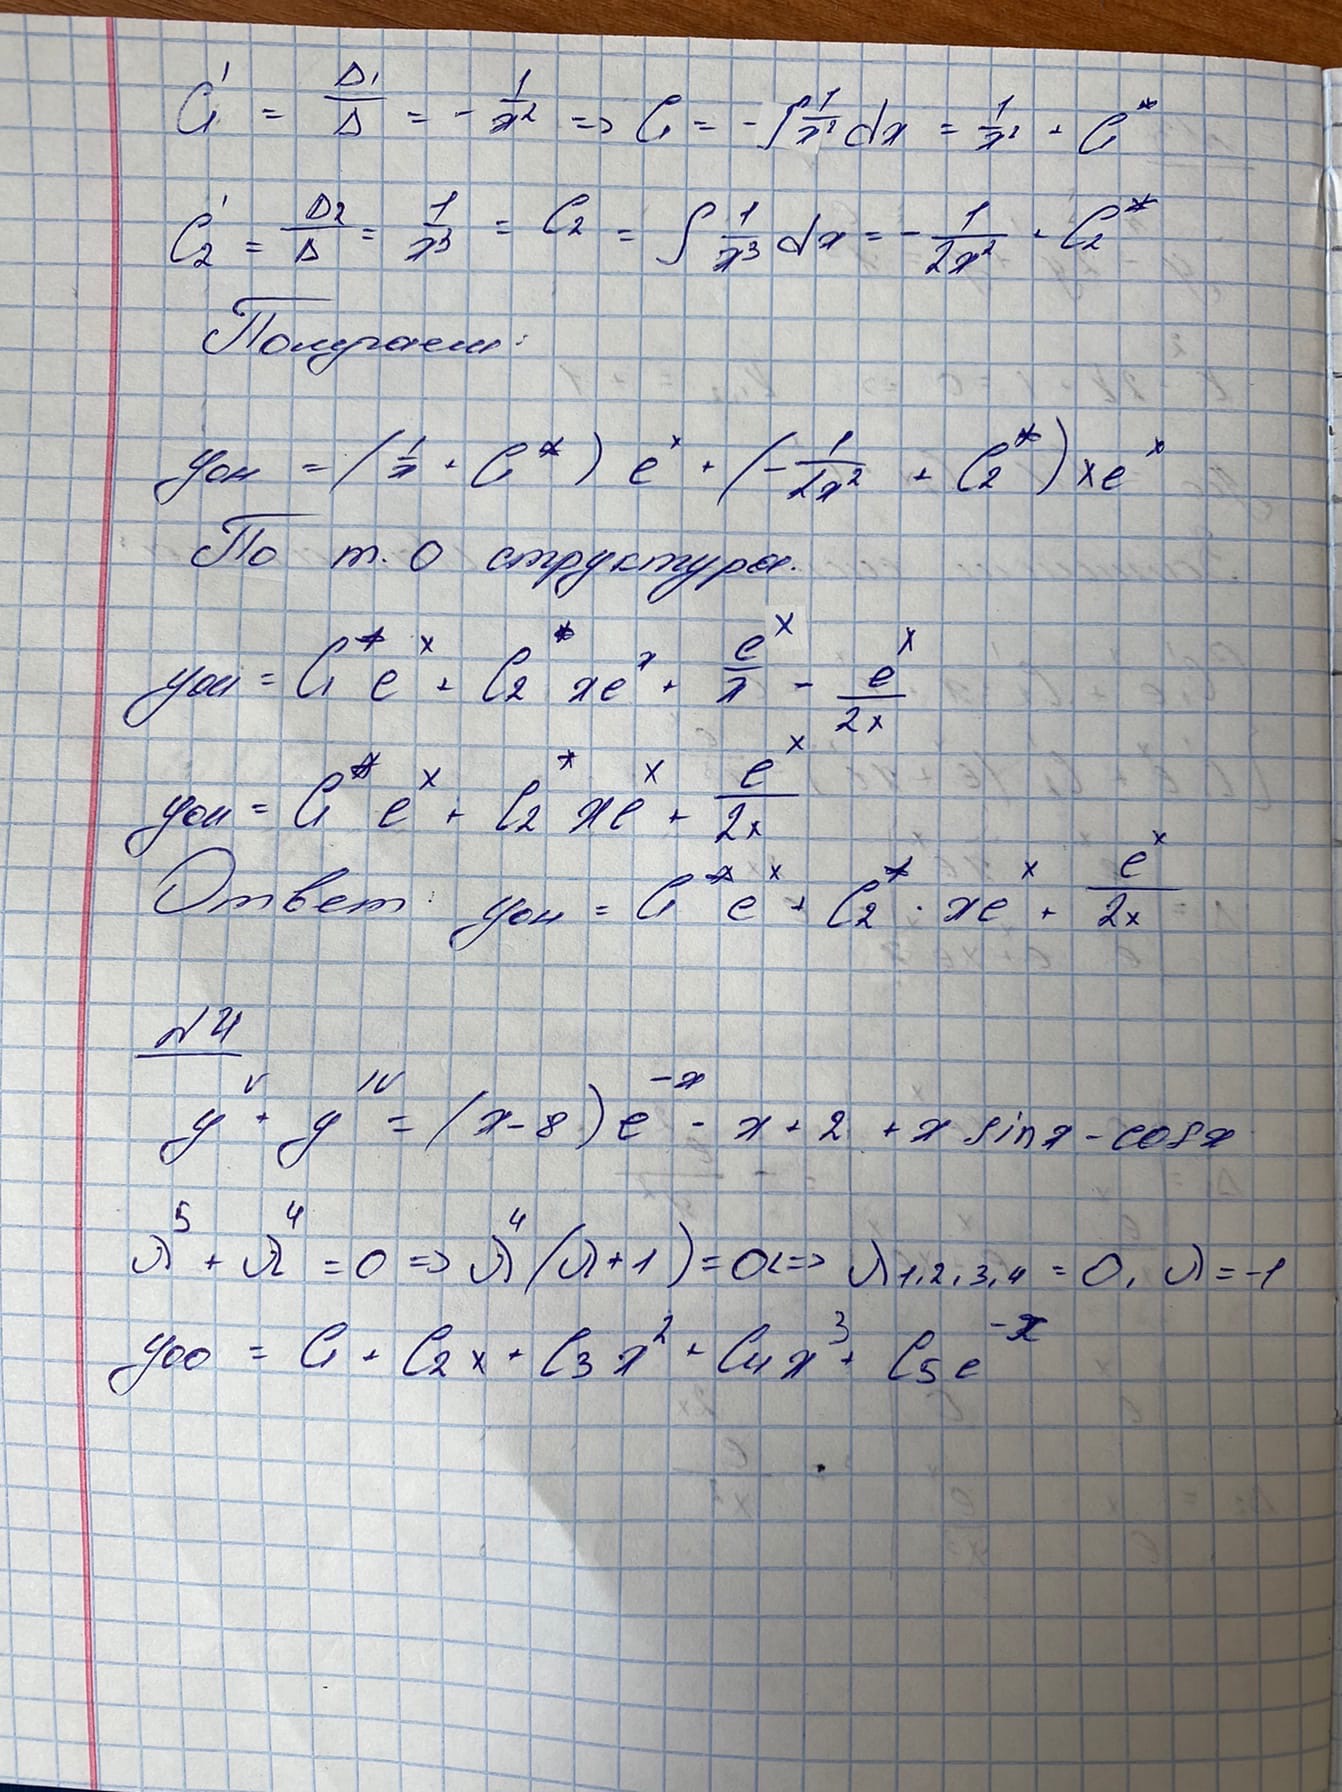 C₁' = Δ₁/Δ = -1/x² => C₁ = -∫ 1/x² dx = 1/x² + C₁*
C₂' = Δ₂/Δ = 1/x³ = C₂ = ∫ 1/x³ dx = -1/(2x²) + C₂*
Получаем:
yон = (1/x + C₁*) eˣ + (-1/(2x²) + C₂*) xeˣ
По т. О структура.
yон = C₁* eˣ + C₂* xeˣ + eˣ/x - eˣ/(2x)
yон = C₁* eˣ + C₂* xeˣ + eˣ/(2x)
Ответ: yон = C₁* eˣ + C₂* · xeˣ + eˣ/(2x)
N4
yⱽ + yᴵⱽ = (x-8)e⁻ˣ - x + 2 + x sinx - cosx
λ⁵ + λ⁴ = 0 => λ⁴(λ+1) = 0 <=> λ₁,₂,₃,₄ = 0, λ = -1
yоо = C₁ + C₂x + C₃x² + C₄x³ + C₅e⁻ˣ